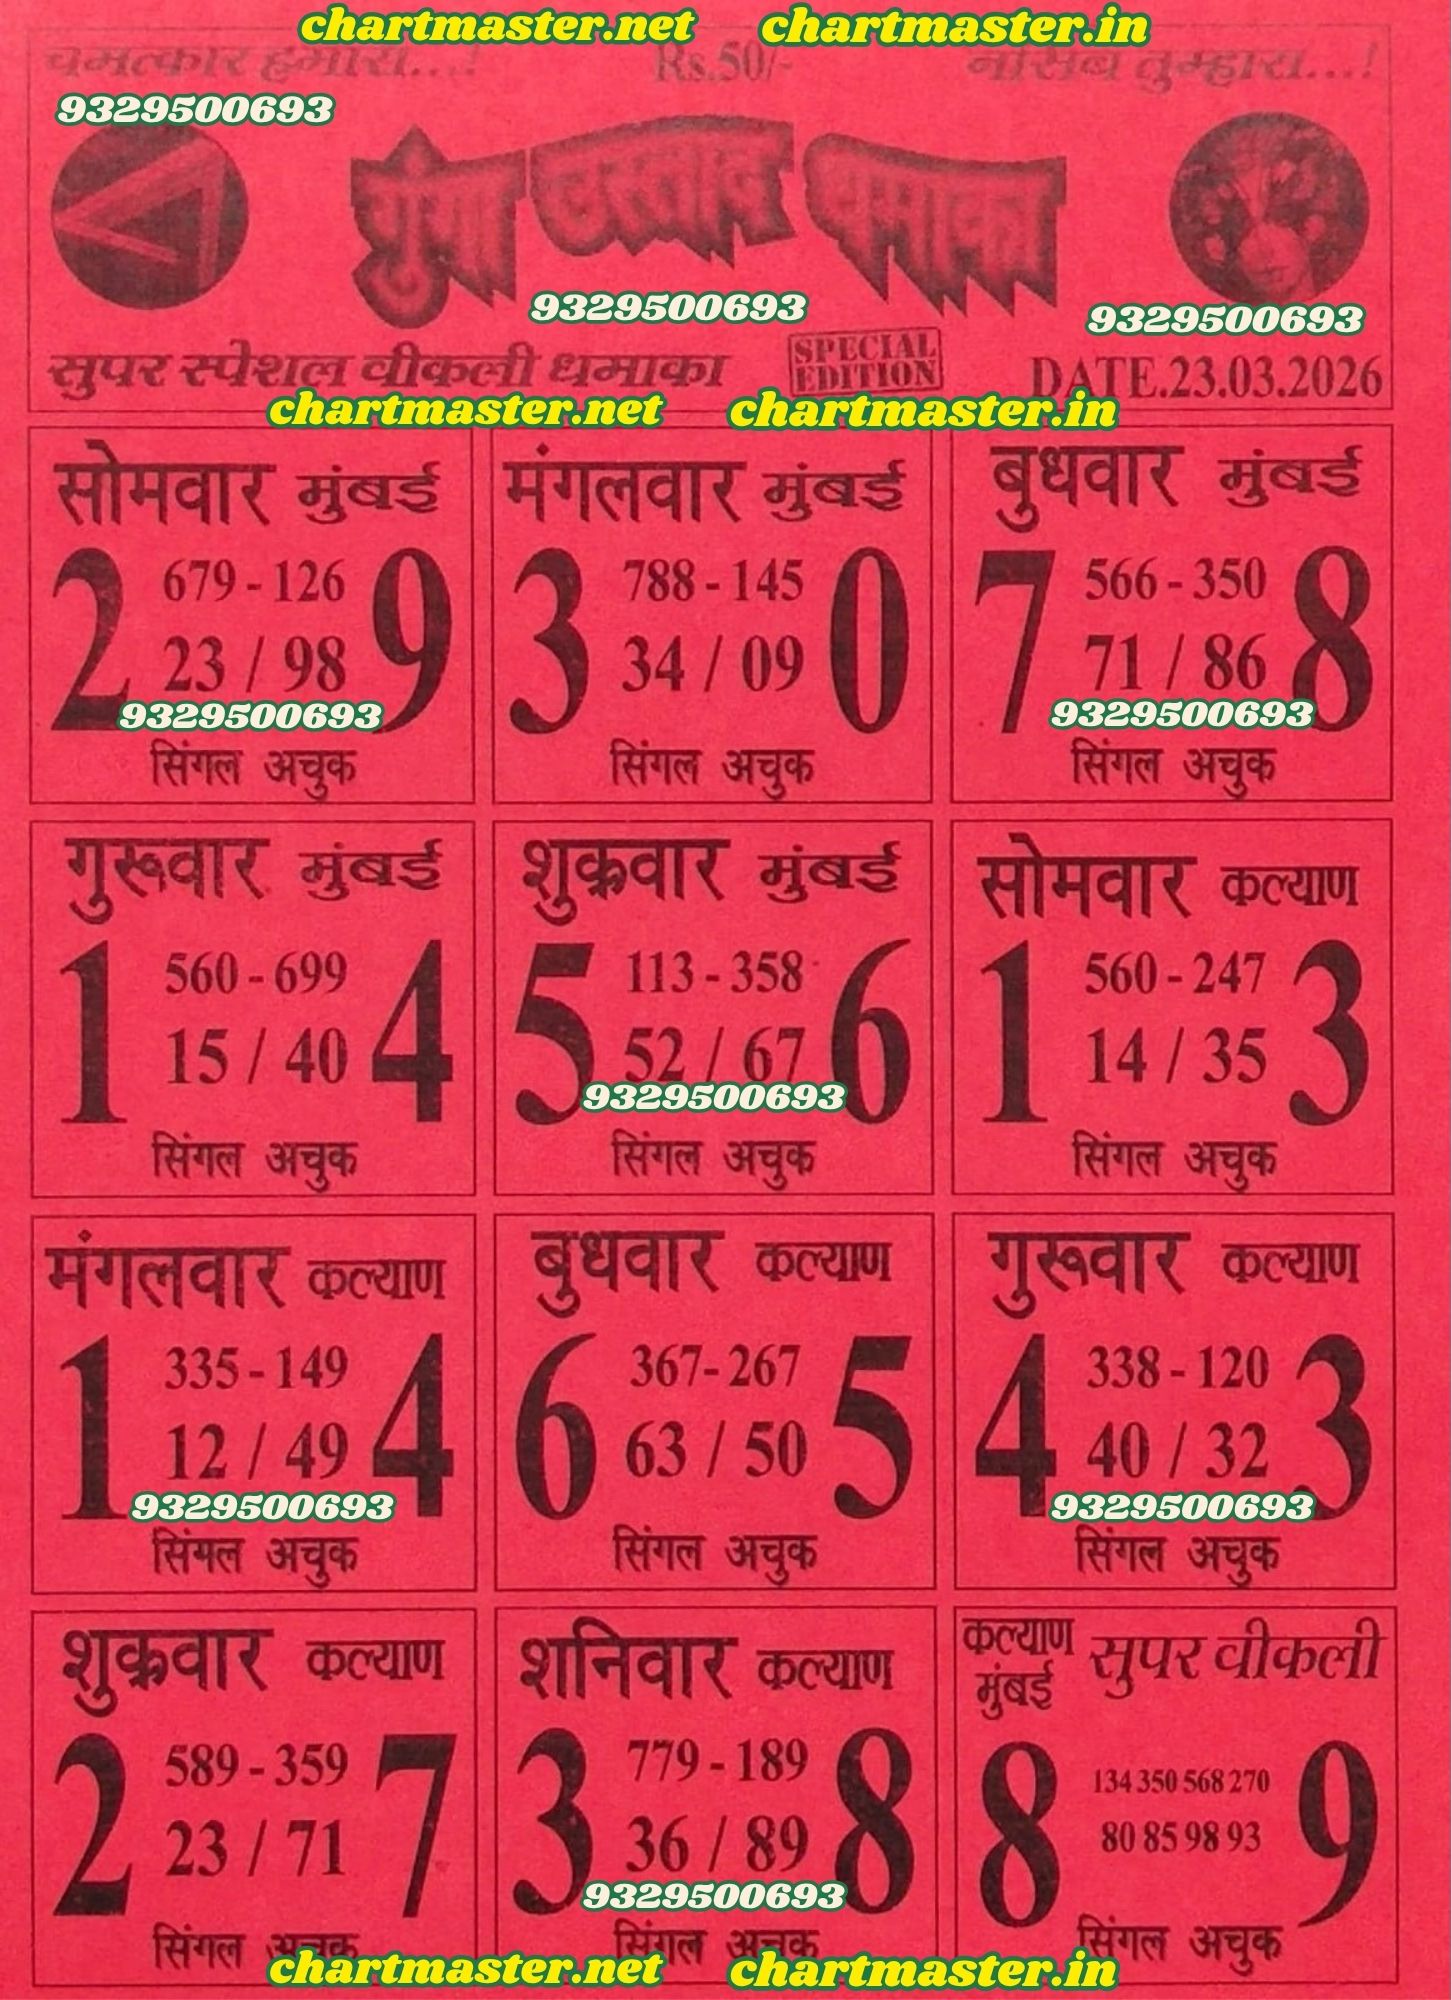 chartmaster.net chartmaster.in
चमत्कार हमारा...! Rs.50/- नसिब तुम्हारा...!
9329500693
गुंगा उस्ताद धमाका
9329500693 9329500693
सुपर स्पेशल वीकली धमाका SPECIAL EDITION DATE.23.03.2026
chartmaster.net chartmaster.in
सोमवार मुंबई
2 679 - 126 9
23 / 98
9329500693
सिंगल अचुक
मंगलवार मुंबई
3 788 - 145 0
34 / 09
सिंगल अचुक
बुधवार मुंबई
7 566 - 350 8
71 / 86
9329500693
सिंगल अचुक
गुरूवार मुंबई
1 560 - 699 4
15 / 40
सिंगल अचुक
शुक्रवार मुंबई
5 113 - 358 6
52 / 67
9329500693
सिंगल अचुक
सोमवार कल्याण
1 560 - 247 3
14 / 35
सिंगल अचुक
मंगलवार कल्याण
1 335 - 149 4
12 / 49
9329500693
सिंगल अचुक
बुधवार कल्याण
6 367- 267 5
63 / 50
सिंगल अचुक
गुरूवार कल्याण
4 338 - 120 3
40 / 32
9329500693
सिंगल अचुक
शुक्रवार कल्याण
2 589 - 359 7
23 / 71
सिंगल अचुक
शनिवार कल्याण
3 779 - 189 8
36 / 89
9329500693
सिंगल अचुक
कल्याण मुंबई सुपर वीकली
8 134 350 568 270 9
80 85 98 93
सिंगल अचुक
chartmaster.net chartmaster.in